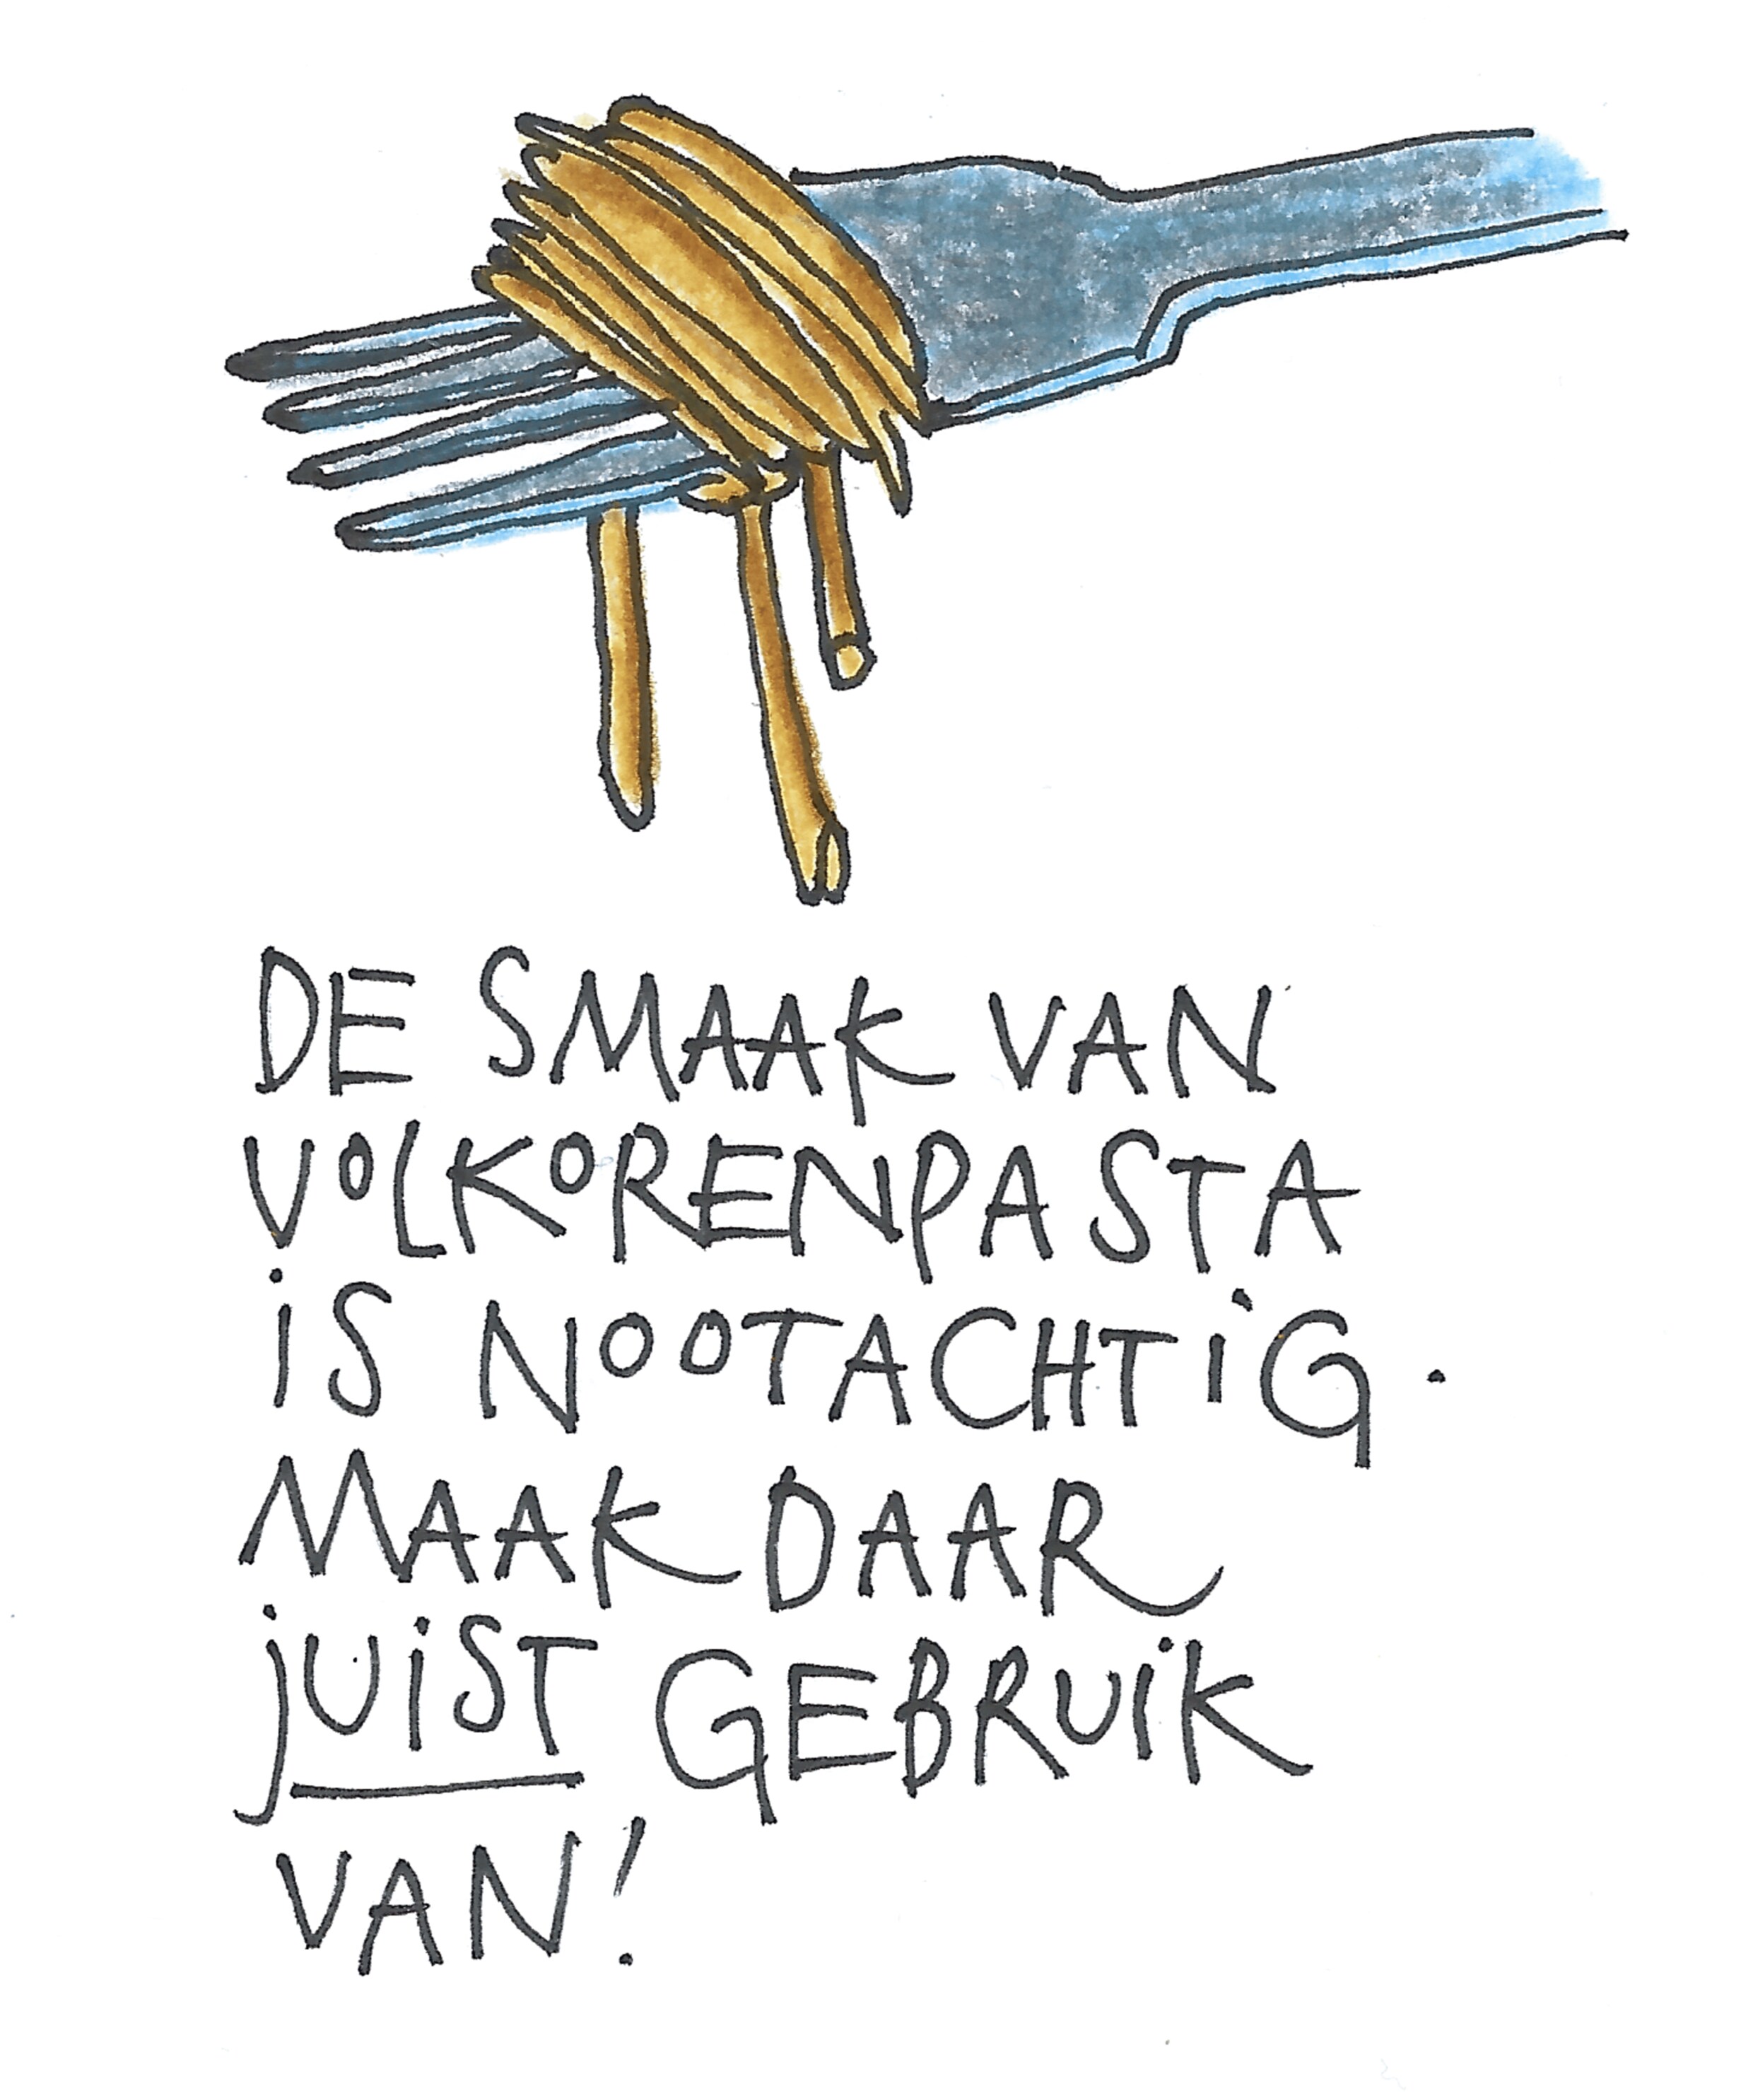 DE SMAAK VAN
VOLKORENPASTA
iS NOOTACHTiG.
MAAK DAAR
jUiST GEBRUiK
VAN!